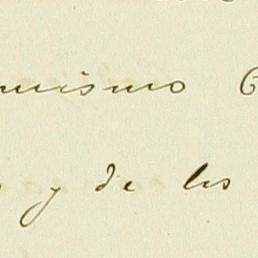 mismo
y de los